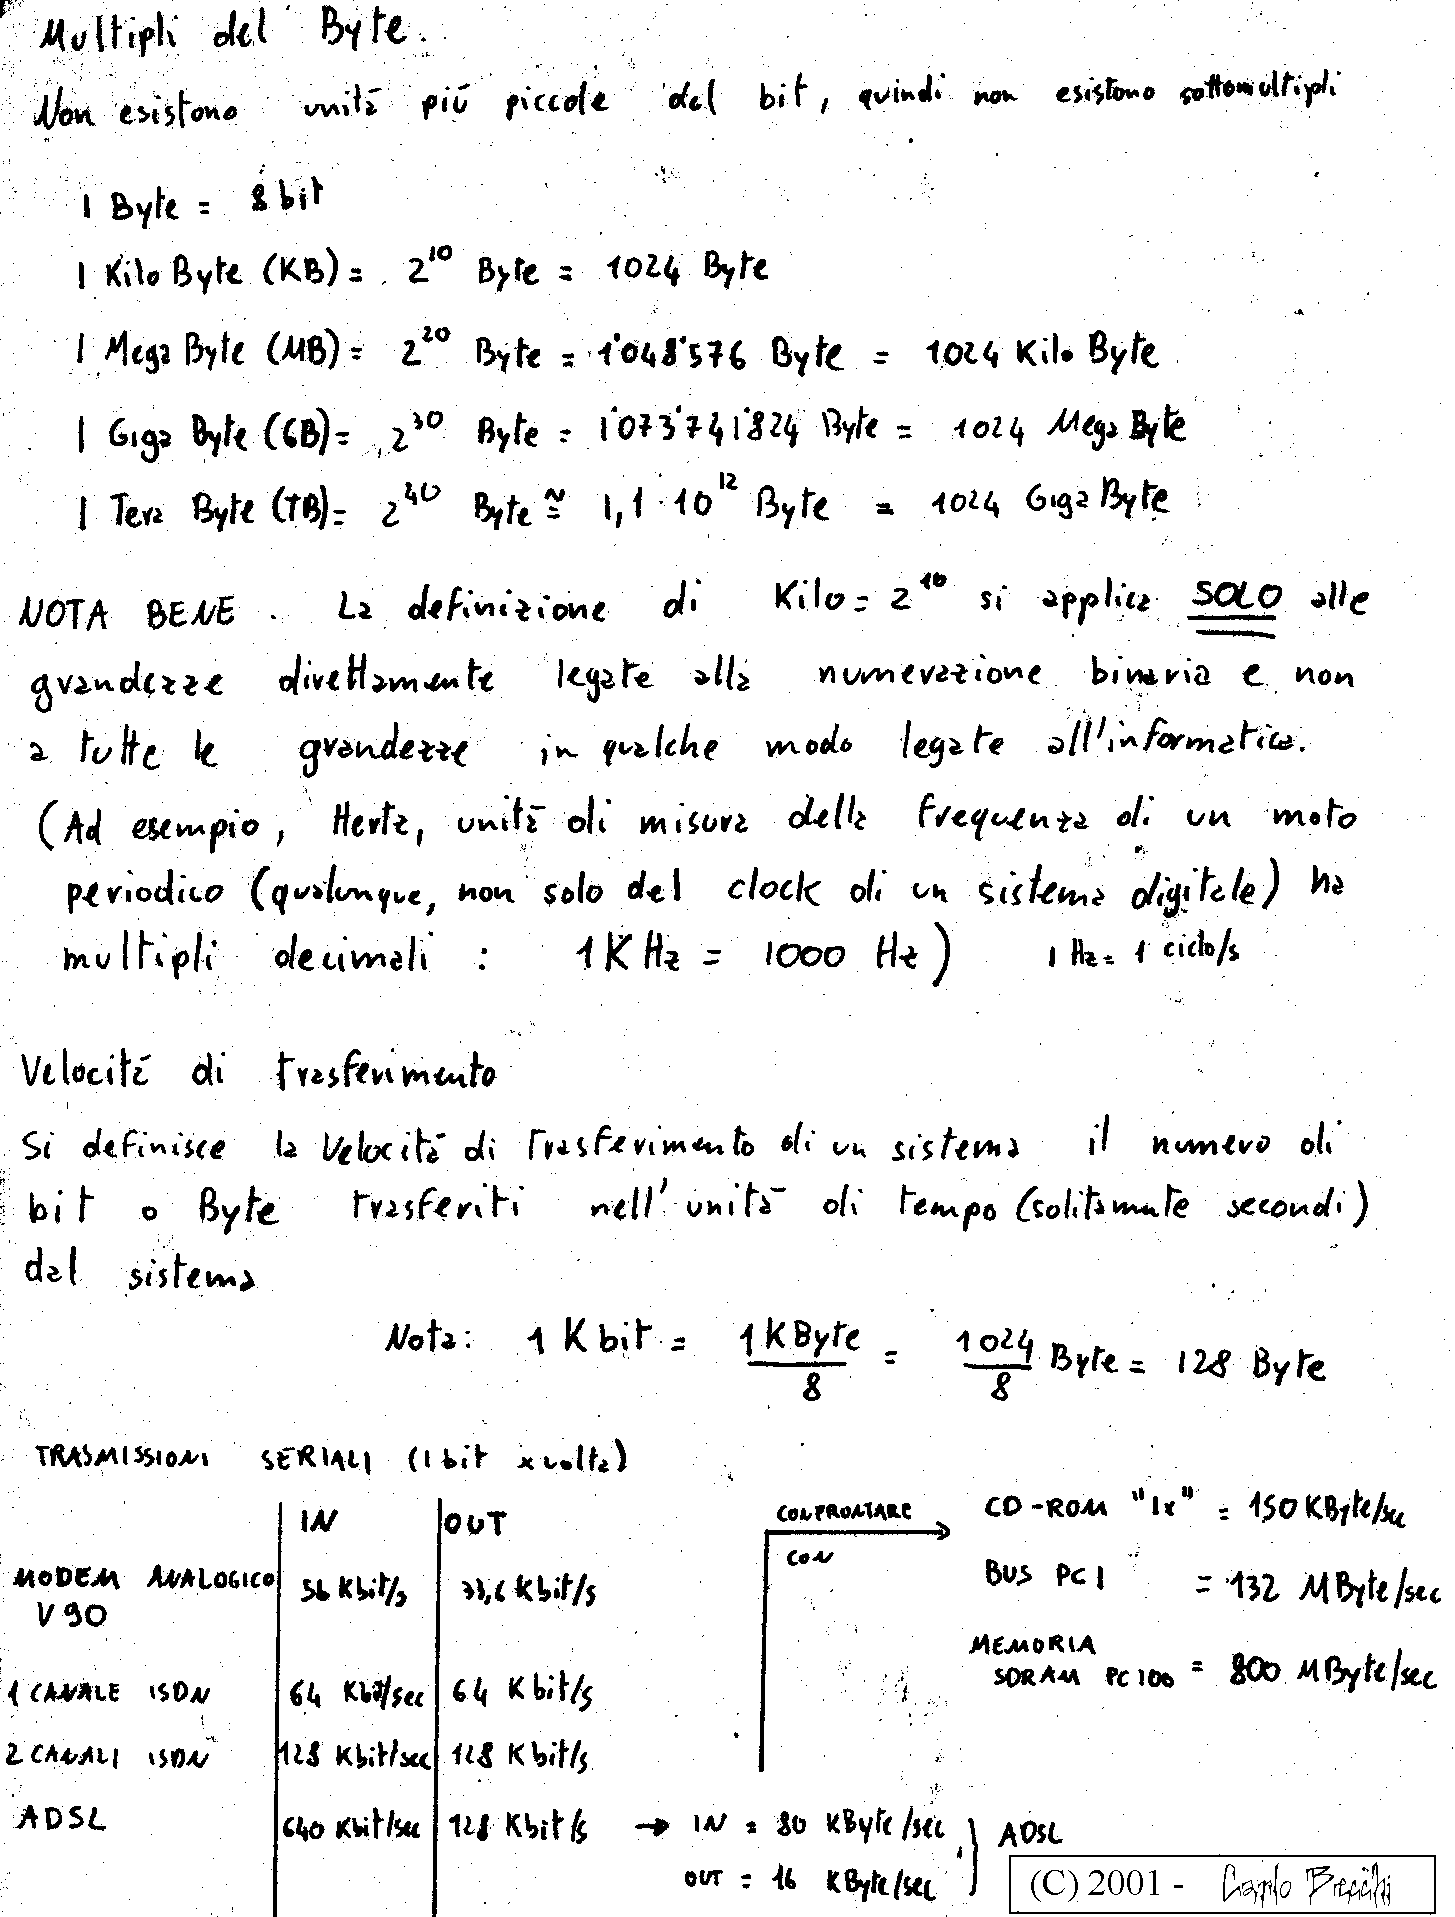 Multipli del Byte.
Non esistono unità più piccole del bit, quindi non esistono sottomultipli
1 Byte = 8 bit
1 Kilo Byte (KB) = 2^10 Byte = 1024 Byte
1 Mega Byte (MB) = 2^20 Byte = 1'048'576 Byte = 1024 Kilo Byte
1 Giga Byte (GB) = 2^30 Byte = 1'073'741'824 Byte = 1024 Mega Byte
1 Tera Byte (TB) = 2^40 Byte ≅ 1,1·10^12 Byte = 1024 Giga Byte
NOTA BENE. La definizione di Kilo = 2^10 si applica SOLO alle
grandezze direttamente legate alla numerazione binaria e non
a tutte le grandezze in qualche modo legate all'informatica.
(Ad esempio, Hertz, unità di misura della frequenza di un moto
periodico (qualunque, non solo del clock di un sistema digitale) ha
multipli decimali : 1 K Hz = 1000 Hz) 1 Hz = 1 ciclo/s
Velocità di trasferimento
Si definisce la Velocità di Trasferimento di un sistema il numero di
bit o Byte trasferiti nell'unità di tempo (solitamente secondi)
dal sistema
Nota: 1 K bit = 1 K Byte / 8 = 1024 / 8 Byte = 128 Byte
TRASMISSIONI SERIALI (1 bit x volta)
IN OUT
MODEM ANALOGICO V90 56 Kbit/s 33,6 Kbit/s
1 CANALE ISDN 64 Kbit/sec 64 Kbit/s
2 CANALI ISDN 128 Kbit/sec 128 Kbit/s
ADSL 640 Kbit/sec 128 Kbit/s → IN = 80 KByte/sec } ADSL
OUT = 16 KByte/sec
CONFRONTARE CON
CD-ROM "1x" = 150 KByte/sec
BUS PCI = 132 MByte/sec
MEMORIA
SDRAM PC100 = 800 MByte/sec
(C) 2001 - Carlo